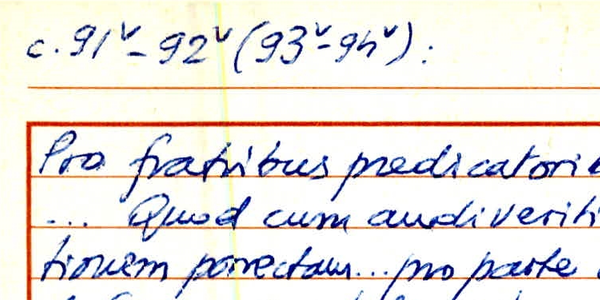 c. 91v - 92v (93v-94v):
Pro fratribus predicatorib
... Quod cum audiveriti
tionem porrectam... pro parte